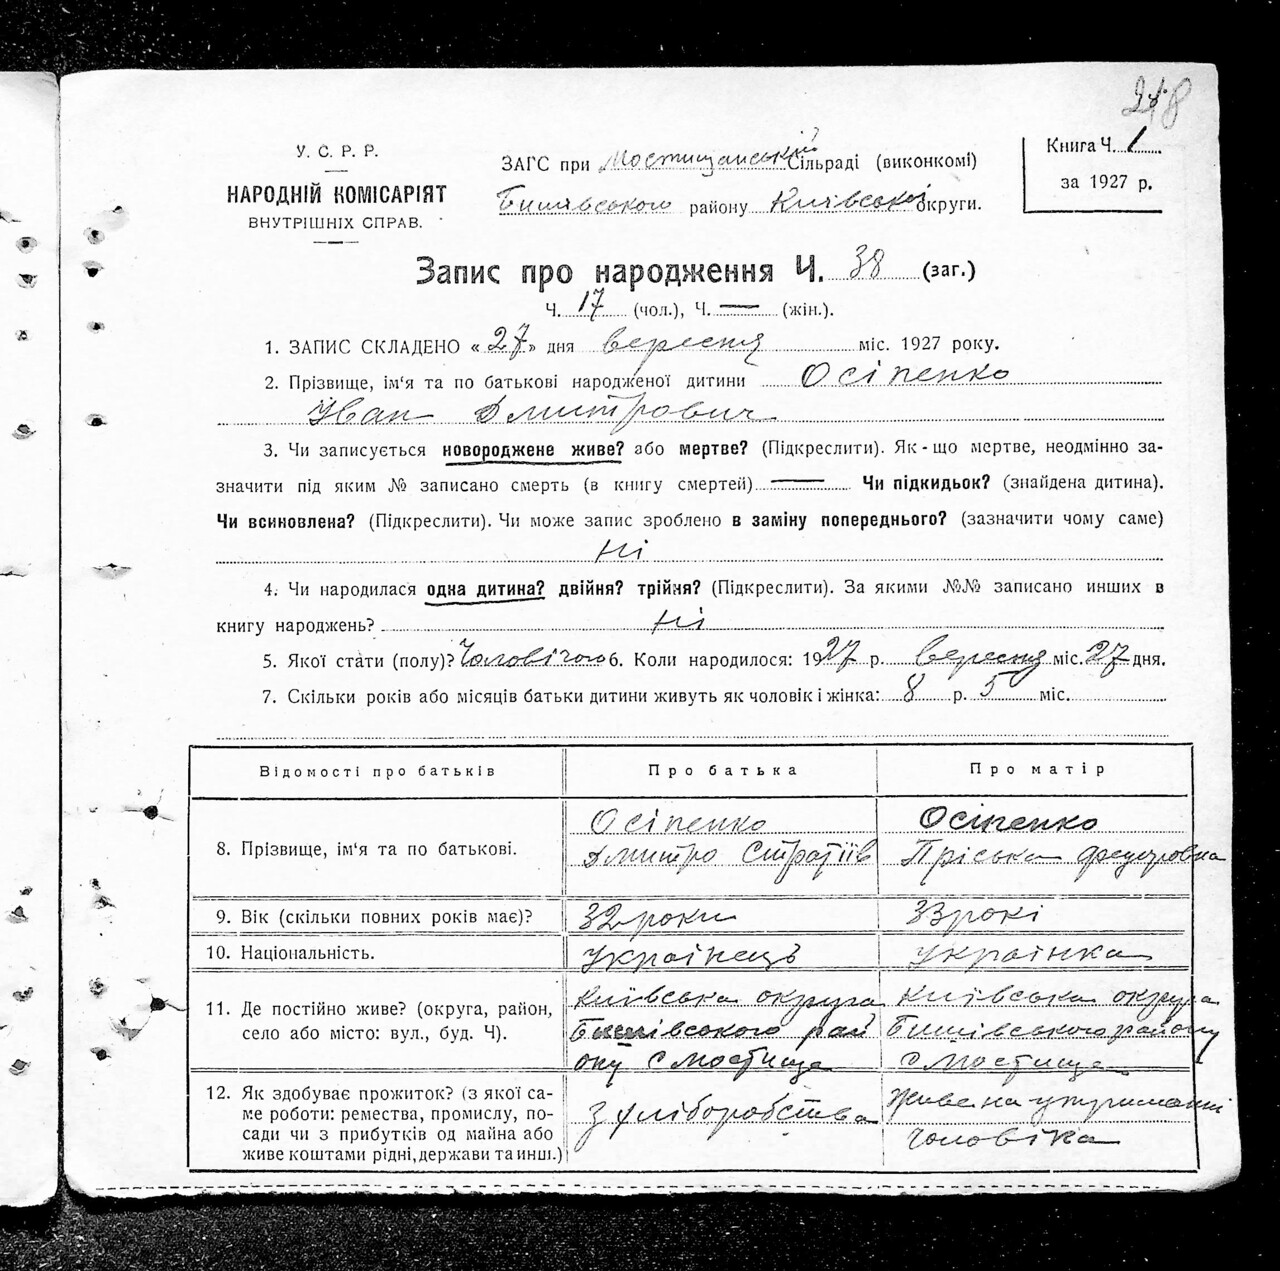 248
У. С. Р. Р.
НАРОДНІЙ КОМІСАРІЯТ
ВНУТРІШНІХ СПРАВ.
ЗАГС при Мостищанській Сільраді (виконкомі)
Бишівського району Київської округи.
Книга Ч. 1
за 1927 р.
Запис про народження Ч. 38 (заг.)
Ч. 17 (чол.), Ч. — (жін.).
1. ЗАПИС СКЛАДЕНО «27» дня вересня міс. 1927 року.
2. Прізвище, ім'я та по батькові народженої дитини Осіпенко
Іван Дмитрович
3. Чи записується новороджене живе? або мертве? (Підкреслити). Як-що мертве, неодмінно за-
значити під яким № записано смерть (в книгу смертей) — Чи підкидьок? (знайдена дитина).
Чи всиновлена? (Підкреслити). Чи може запис зроблено в заміну попереднього? (зазначити чому саме)
ні
4. Чи народилася одна дитина? двійня? трійня? (Підкреслити). За якими №№ записано инших в
книгу народжень? ні
5. Якої стати (полу)? Чоловічою 6. Коли народилося: 1927 р. вересня міс. 27 дня.
7. Скільки років або місяців батьки дитини живуть як чоловік і жінка: 8 р. 5 міс.
Відомості про батьків Про батька Про матір
8. Прізвище, ім'я та по батькові.
Осіпенко
Дмитро Стратіїв
Осіпенко
Пріська Федоровна
9. Вік (скільки повних років має)? 32 роки 33 рокі
10. Національність. Українець Українка
11. Де постійно живе? (округа, район,
село або місто: вул., буд. Ч).
Київська округа
Бишівського рай
ону с Мостище
Київська округа
Бишівського району
с Мостище
12. Як здобуває прожиток? (з якої са-
ме роботи: ремества, промислу, по-
сади чи з прибутків од майна або
живе коштами рідні, держави та инш.)
З хліборобства
Живе на утриманні
чоловіка